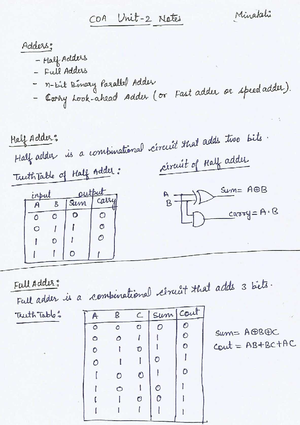 COA Unit-2 Notes
Adders:
- Half Adders
- Full Adders
- n-bit Binary Parallel Adder
- Carry Look-ahead Adder (or Fast adder or speed adder).
Half Adder:
Half adder is a combinational circuit that adds two bits.
Truth Table of Half Adder: circuit of Half adder
input output
A B Sum Carry
0 0 0 0
0 1 1 0
1 0 1 0
1 1 0 1
A
B
Sum = A⊕B
Carry = A·B
Full Adder:
Full adder is a combinational circuit that adds 3 bits.
Truth Table:
A B C Sum Cout
0 0 0 0 0
0 0 1 1 0
0 1 0 1 0
0 1 1 0 1
1 0 0 1 0
1 0 1 0 1
1 1 0 0 1
1 1 1 1 1
Sum = A⊕B⊕C
Cout = AB+BC+AC